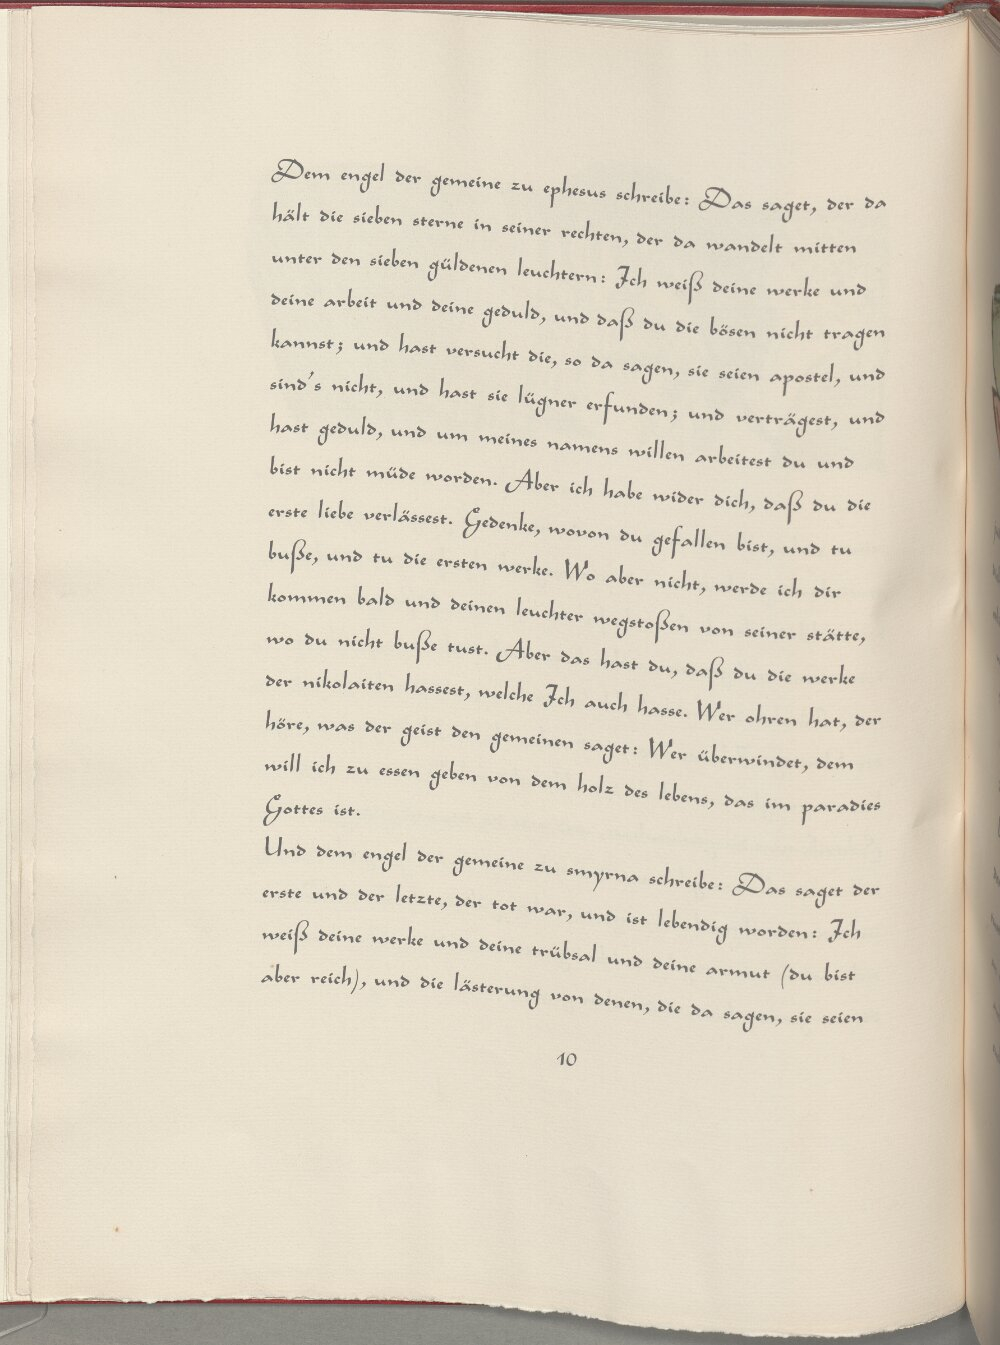 Dem engel der gemeine zu ephesus schreibe: Das saget, der da
hält die sieben sterne in seiner rechten, der da wandelt mitten
unter den sieben güldenen leuchtern: Ich weiß deine werke und
deine arbeit und deine geduld, und daß du die bösen nicht tragen
kannst; und hast versucht die, so da sagen, sie seien apostel, und
sind's nicht, und hast sie lügner erfunden; und verträgest, und
hast geduld, und um meines namens willen arbeitest du und
bist nicht müde worden. Aber ich habe wider dich, daß du die
erste liebe verlässest. Gedenke, wovon du gefallen bist, und tu
buße, und tu die ersten werke. Wo aber nicht, werde ich dir
kommen bald und deinen leuchter wegstoßen von seiner stätte,
wo du nicht buße tust. Aber das hast du, daß du die werke
der nikolaiten hassest, welche Ich auch hasse. Wer ohren hat, der
höre, was der geist den gemeinen saget: Wer überwindet, dem
will ich zu essen geben von dem holz des lebens, das im paradies
Gottes ist.
Und dem engel der gemeine zu smyrna schreibe: Das saget der
erste und der letzte, der tot war, und ist lebendig worden: Ich
weiß deine werke und deine trübsal und deine armut (du bist
aber reich), und die lästerung von denen, die da sagen, sie seien
10